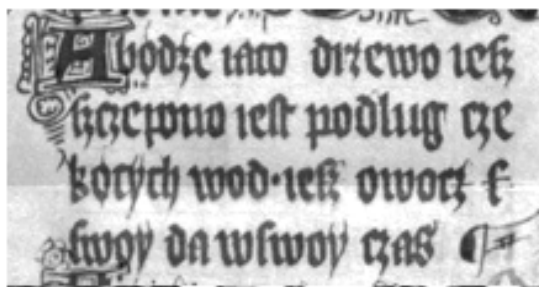 Abodze iaco drzewo ieſz
ſzczepono ieſt podlug cze
kocych wod·ieſz owocz ſ
ſwoy da wſwoy czas ¶